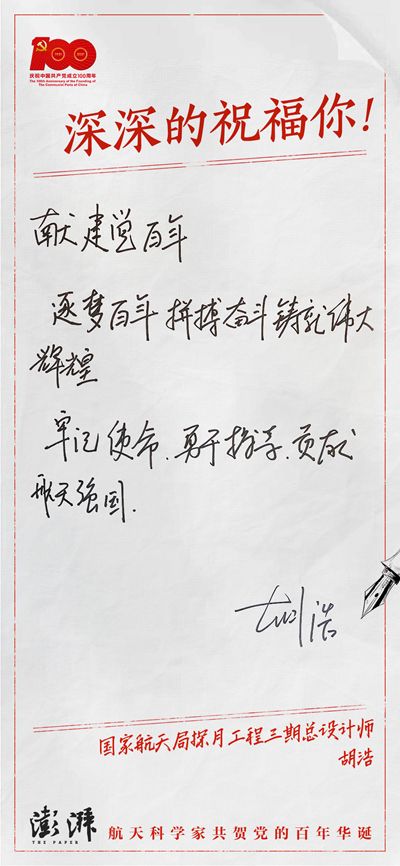 100
1921 2021
庆祝中国共产党成立100周年
The 100th Anniversary of the Founding of
The Communist Party of China
深深的祝福你!
献建党百年
逐梦百年 拼搏奋斗 铸就伟大
辉煌
牢记使命.勇于担当.贡献
航天强国.
胡浩
国家航天局探月工程三期总设计师
胡浩
澎湃
THE PAPER
航天科学家共贺党的百年华诞